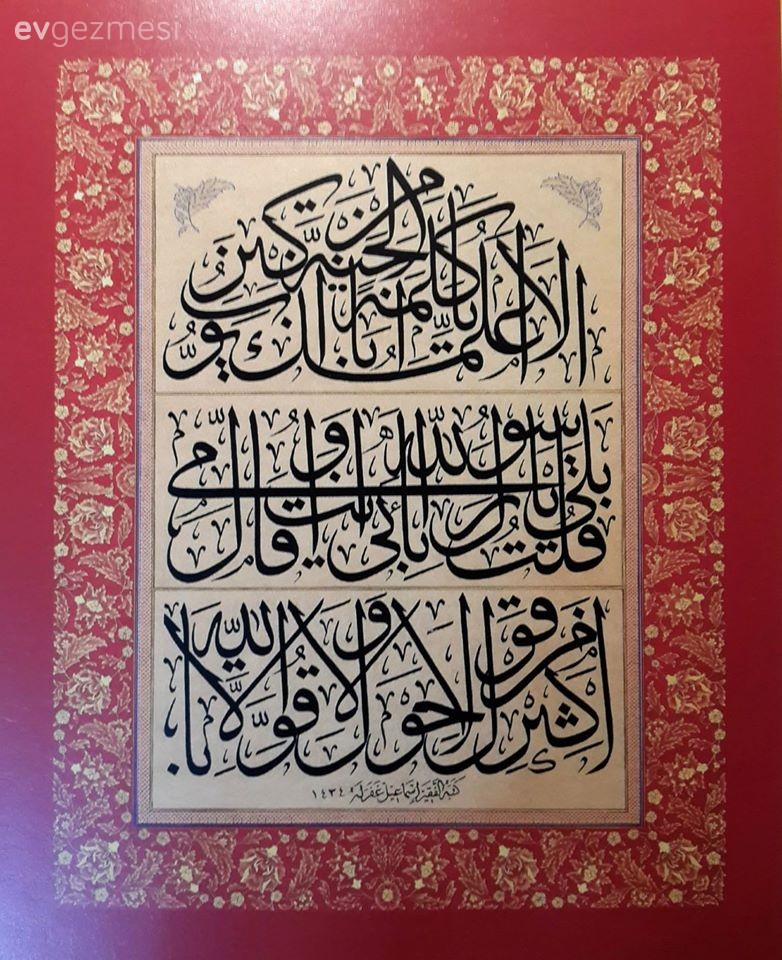 evgezmesi
ألا أعلمك يا أبا أيوب كلمة من كنز الجنة
قلت بلى يا رسول الله بأبي أنت وأمي قال
أكثر من قول لا حول ولا قوة إلا بالله
كتبه الفقير اسماعيل غفر له ١٤٣٤